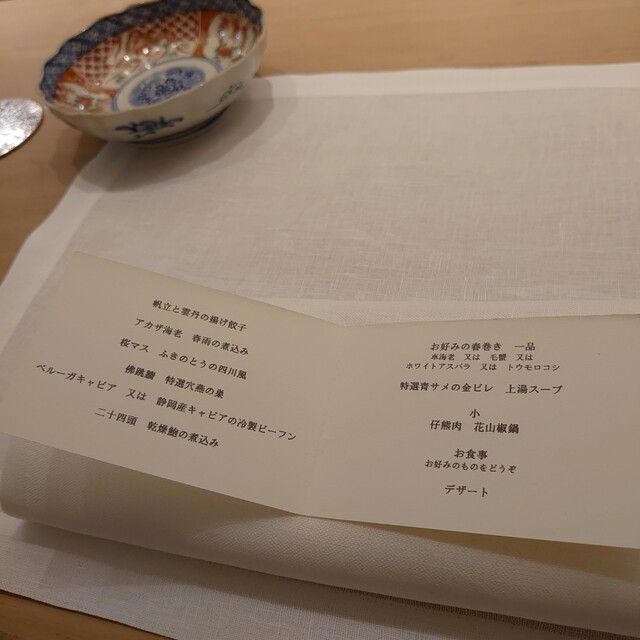 帆立と雲丹の揚げ餃子
アカザ海老　春雨の煮込み
桜マス　ふきのとうの四川風
佛跳牆　特選穴燕の巣
ベルーガキャビア　又は　静岡産キャビアの冷製ビーフン
二十四頭　乾燥鮑の煮込み
お好みの春巻き　一品
車海老　又は　毛蟹　又は
ホワイトアスパラ　又は　トウモロコシ
特選青サメの金ビレ　上湯スープ
小
仔熊肉　花山椒鍋
お食事
お好みのものをどうぞ
デザート